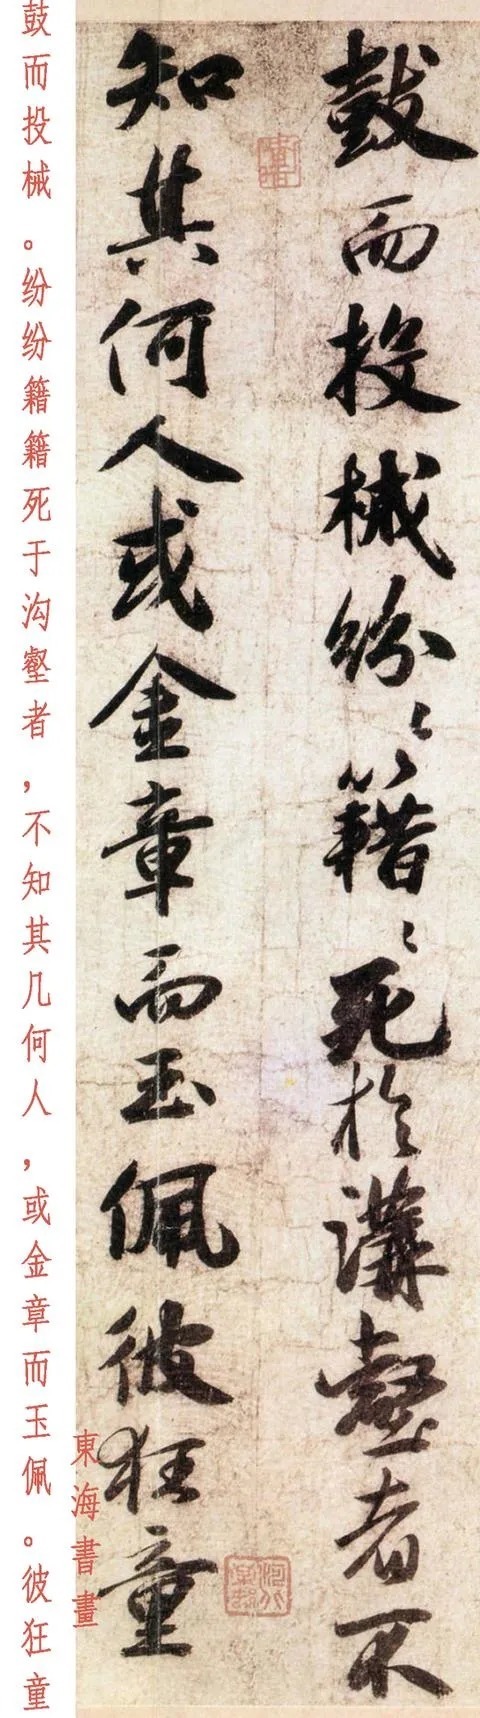 鼓而投械紛〻籍〻死於溝壑者不
知其何人或金章而玉佩彼狂童
鼓而投械。纷纷籍籍死于沟壑者，不知其几何人，或金章而玉佩。彼狂童
東海書畫